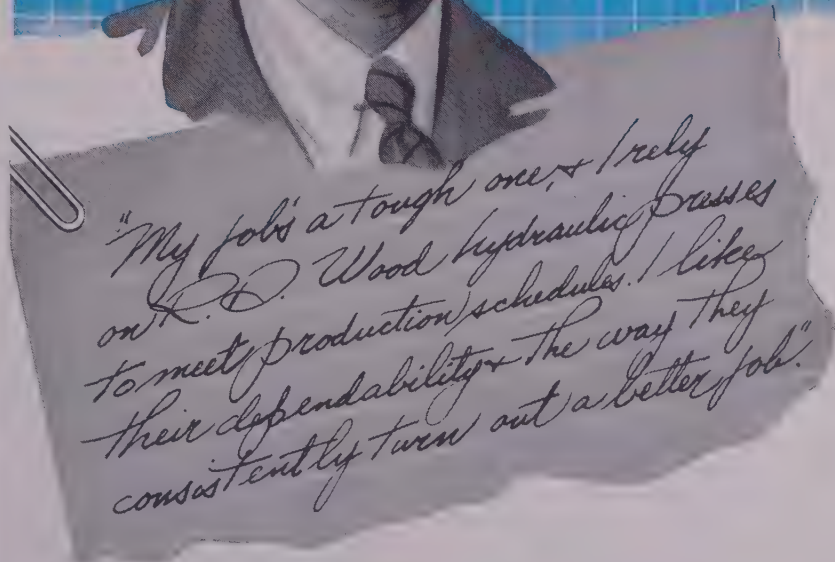 "My job's a tough one, & I rely
on R. D. Wood hydraulic presses
to meet production schedules. I like
their dependability & the way they
consistently turn out a better job."